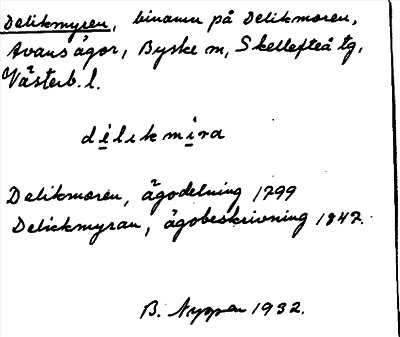 Delikmyren, binamn på Delikmoren,
Avans ägor, Byske sn, Skellefteå tg,
Västerb. l.
delikmira
Delikmoren, ägodelning 1799
Delickmyran, ägobeskrivning 1847.
B. 1932.